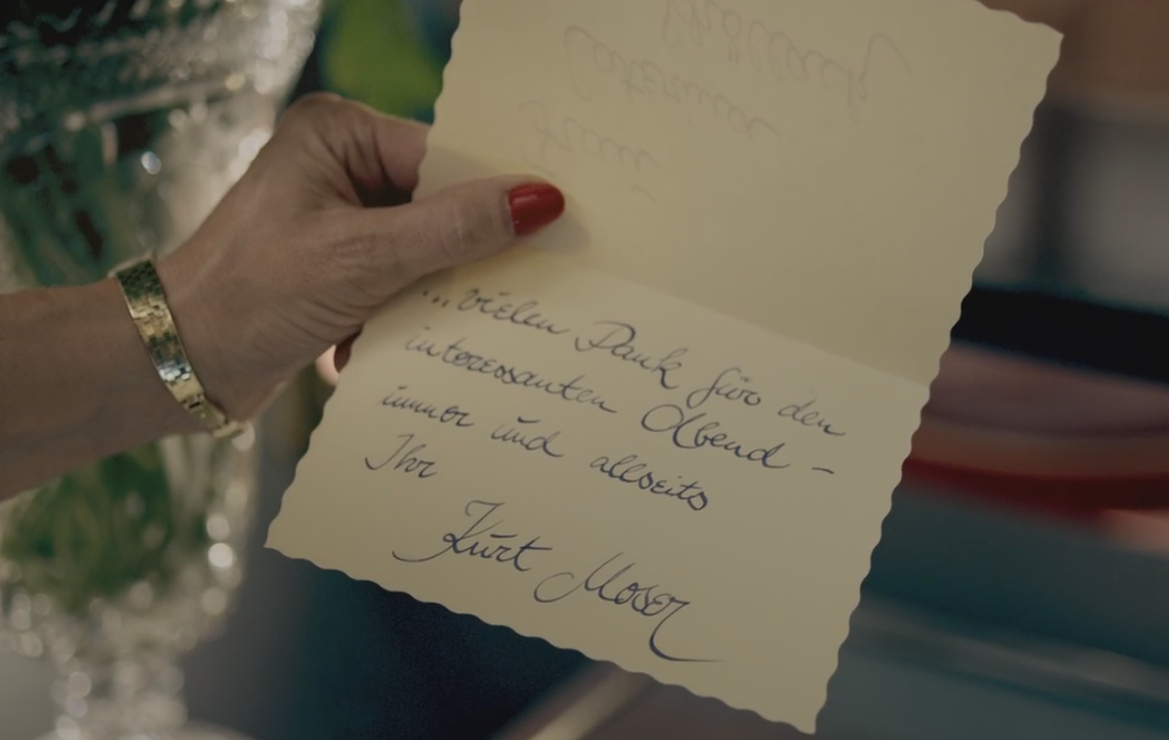 Frau
Caterina
... vielen Dank fürs den
interessanten Abend –
immer und allseits
Ihr
Kurt Moser